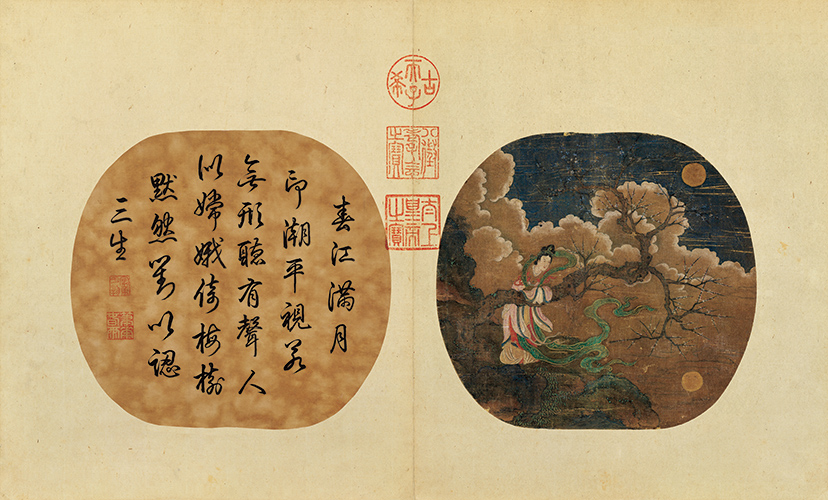 古希天子
八徵耄念之寶
太上皇帝之寶
春江滿月
印潮平視若
無形聽有聲人
似嫦娥倚梅樹
默然對以認
三生